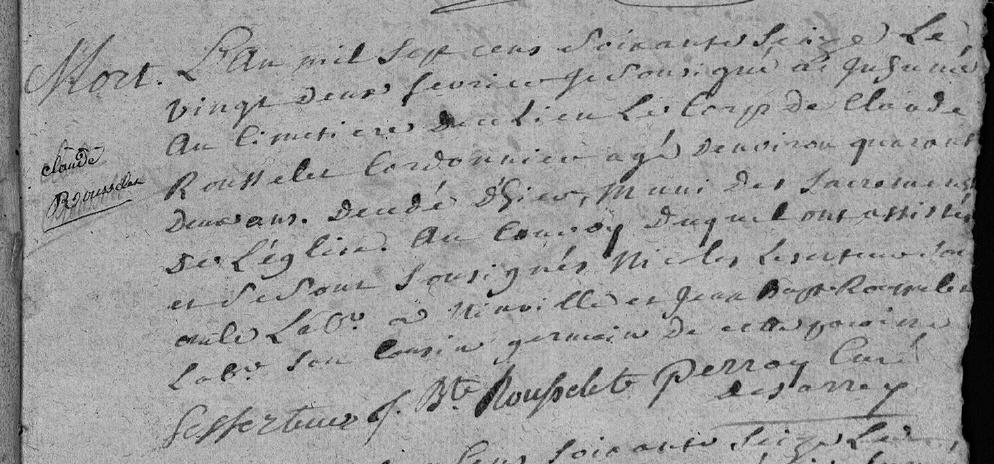 Mort. L'An mil sept cens soixante seize Le
vingt deux fevrier Je Sousigné ai Inhumé
Au Cimetiere de ce Lieu Le Corp de Claude
Rousselet Cordonnier agé denviron quarante
Deux ans. Decedé d'hier, Muni des Sacremens
De L'église. Au Convoy Duquel ont assisté
et se sont sousignés Nicolas Leserteur son
oncle Labr. a et Jean Bapt. Rousselet
Labr. son Cousin germain de cette paroisse
Lesserteur J. Bte Rousselet Perroy Curé
de Sarrey
Claude
Rousselet
Cens soixante Seize Le